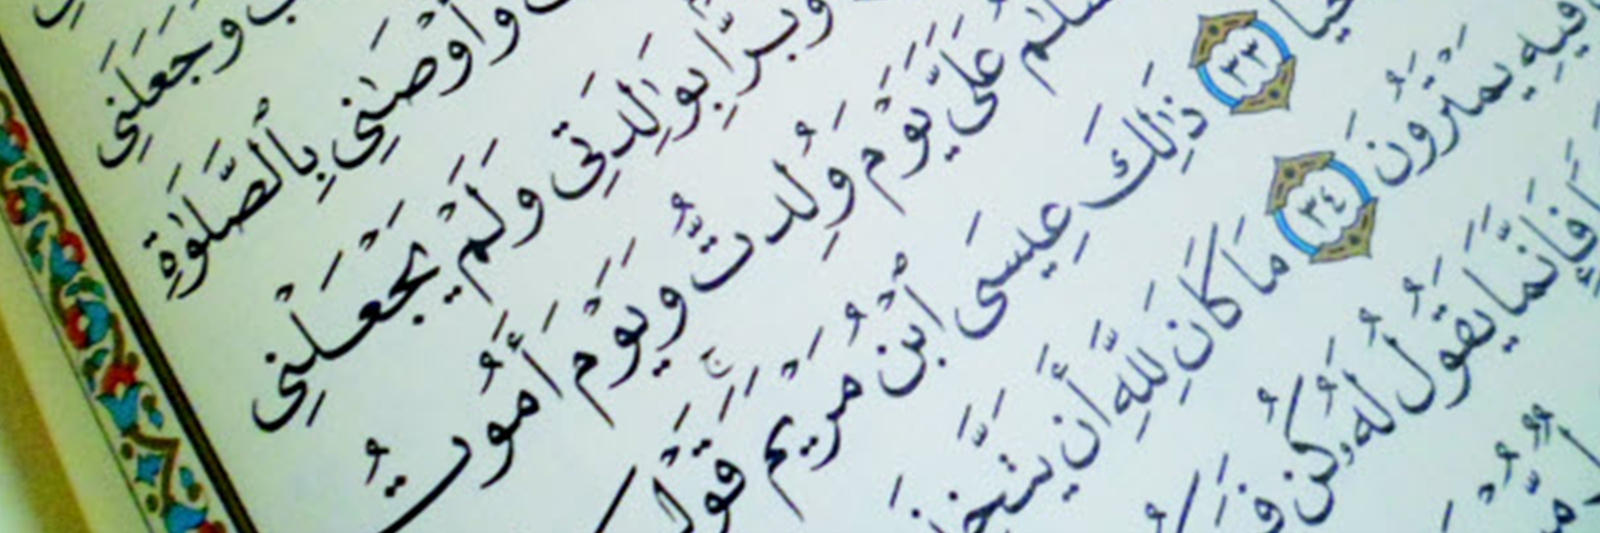 وَجَعَلَنِى
وَأَوْصَٰنِى بِٱلصَّلَوٰةِ
وَبَرًّۢا بِوَٰلِدَتِى وَلَمْ يَجْعَلْنِى
عَلَىَّ يَوْمَ وُلِدتُّ وَيَوْمَ أَمُوتُ
حَيًّا ٣٣ ذَٰلِكَ عِيسَى ٱبْنُ مَرْيَمَ قَوْلَ
فِيهِ يَمْتَرُونَ ٣٤ مَا كَانَ لِلَّهِ أَن يَتَّخِذَ
فَإِنَّمَا يَقُولُ لَهُۥ كُن